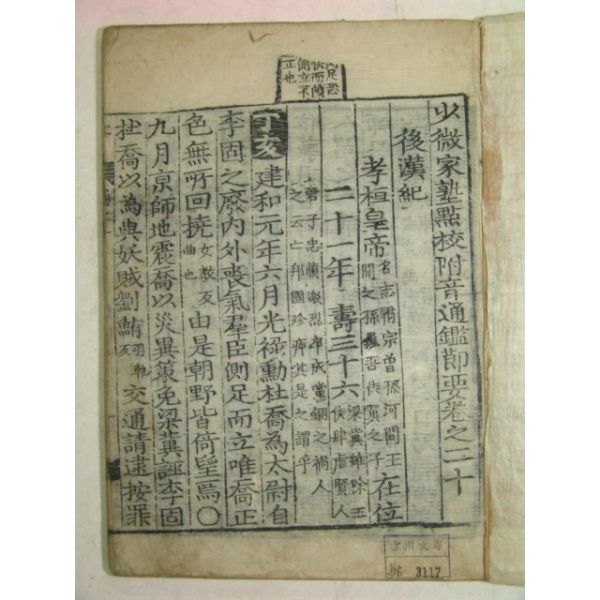 足恐
懼而傾
側立不
正也
少微家塾點校附音通鑑節要卷之二十
後漢紀
孝桓皇帝 名志肅宗曾孫河間王 開之孫蠡吾侯翼之子 在位
二十一年 壽三十六 梁冀雖除五 侯肆虐賢人
君子忠憤激烈卒成黨錮之禍人
之云亡邦國殄瘁其是之謂乎
丁亥 建和元年六月光祿勳杜喬為太尉自
李固之廢內外喪氣羣臣側足而立唯喬正
色無所回撓 女教反 曲也 由是朝野皆倚望焉○
九月京師地震喬以災異策免梁冀誣李固
杜喬以為與妖賊劉鮪 羽軌反 交通請逮按罪
3117